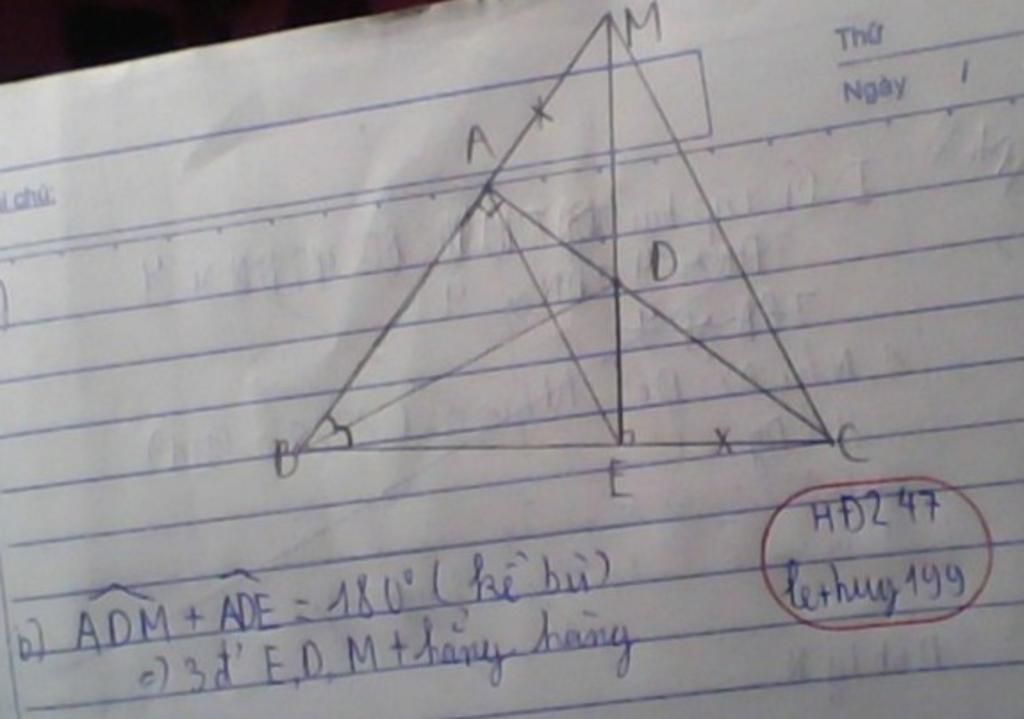 M
Thứ
Ngày /
A
i chú:
D
B
C
E
HĐ247
lethuy199
b) ADM + ADE = 180° (kề bù)
=) 3đ' E, D, M thẳng hàng